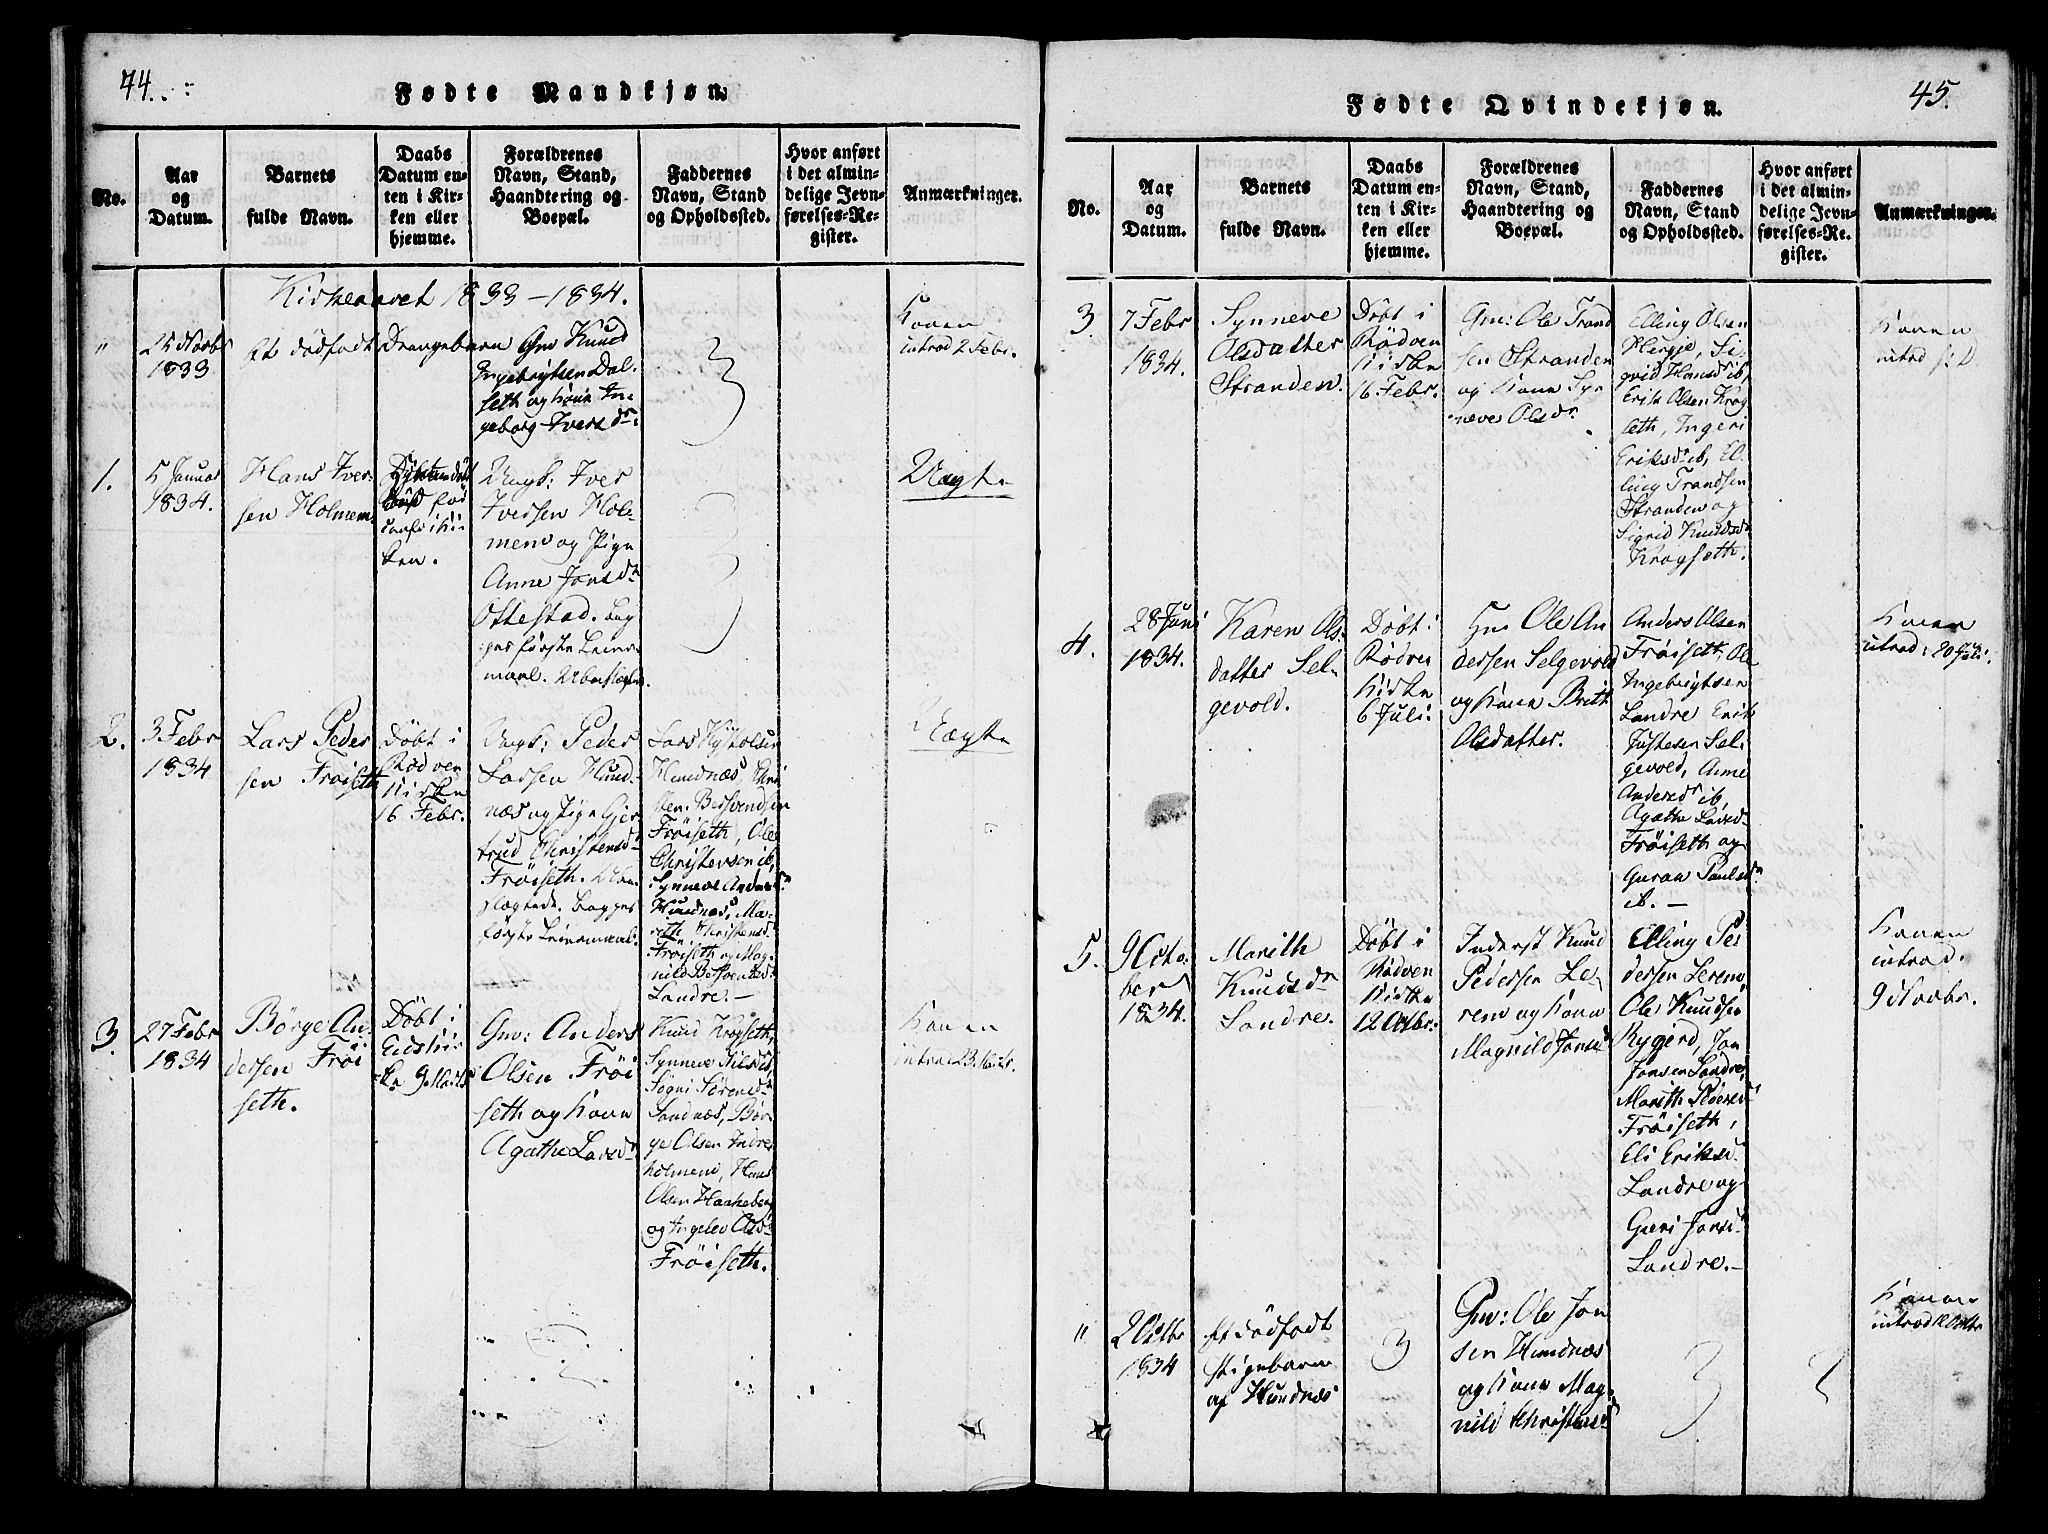 44.
Fødte Mandkjøn.
No.
Aar
og
Datum.
Barnets
fulde Navn.
Daabs
Datum en-
ten i Kir-
ken eller
hjemme.
Forældrenes
Navn, Stand,
Haandtering og
Boepæl.
Faddernes
Navn, Stand
og Opholdssted.
Hvor anført
i det almin-
delige Jevn-
førelses-Re-
gister.
Anmærkninger.
Kirkeaaret 1833-1834.
"
1833
Et dødfødt Drengebarn
Gm Knud
Ingebrigtsen Dal-
seth og Kone In-
geborg Iversdr.
Konen
introd 2 Febr.
1.
5 Januar
1834.
Hans Iver-
sen Holmem
Ungk: Iver
Iversen Hol-
mem og Pige
Anne Jonsdr
Ottestad. Beg-
ges første Leier-
maal.
Uægte
2.
3 Febr
1834
Lars Peder
sen Frøiseth
Døbt i
Rødven
Kirke
16 Febr.
Ungk: Peder
Larsen Hund-
næs og Pige Gjer
trud Christensdr
Frøiseth.
Begges
første Leiermaal.
Lars
Hundnæs,
Frøiseth, Ole
Christensen ib,
Synneve
Hundnæs, Ma-
rith Christensdr
Frøiseth og Mag-
nild
Landre.-
Uægte
3.
27 Febr
1834
Børge An-
dersen Frøi
seth.
Døbt i
Eidskir
ke 9 Marts
Gm: Anders
Olsen Frøi
seth og Kone
Agathe Larsdr
Knud Kragseth,
Synneve Nilsdr,
Søgni Sørensdr
Sandnæs, Bør-
ge Olsen Indre
holmem, Hans
Olsen
og Ingeleu Olsdr
Frøiseth.
Konen
introd 23 Marts.
45.
Fødte Qvindekjøn.
No.
Aar
og
Datum.
Barnets
fulde Navn.
Daabs
Datum en-
ten i Kir-
ken eller
hjemme.
Forældrenes
Navn, Stand,
Haandtering og
Boepæl.
Faddernes
Navn, Stand
og Opholdssted.
Hvor anført
i det almin-
delige Jevn-
førelses-Re-
gister.
Anmærkninger.
3
7 Febr
1834.
Synneve
Olsdatter
Stranden.
Døbt i
Rødven
Kirke
16 Febr.
Gm: Ole Trond
sen Stranden
og Kone Syn
neve Olsdr.
Elling Olsen
Herje, Si-
grid Hansdr ib,
Erik Olsen Krag
seth, Ingeri
Eriksdr ib, El-
ling Trondsen
Stranden og
Sigrid Knudsdr
Kragseth.
Konen
introd s: D
4.
28 Juni
1834.
Karen Ols-
datter Sel-
gevold.
Døbt i
Rødven
Kirke
6 Juli.
Gm Ole An
dersen Selgevold
og Kone Brith
Olsdatter.
Anders Olsen
Frøiseth, Ole
Ingebrigtsen
Landre Erik
Justesen Sel-
gevold, Anne
Andersdr ib,
Agathe Larsdr
Frøiseth og
Guran Paulsdr
ib.-
Konen
introd: 20 Juli.
5.
9 Octo-
ber
1834.
Marith
Knudsdr
Landre.
Døbt i
Rødven
Kirke
12 Octbr:
Inderst Knud
Pedersen Le-
rem og Kone
Magnild Jonsdr
Elling Pe
dersen Lerem,
Ole Knudsen
Rygjerd, Jon
Jonsen Landre,
Marith Pedersdr
Frøiseth,
Eli Eriksdr
Landre og
Gueri Jonsdr
Landre.-
Konen
introd.
9 Novbr.
"
2 Octbr
1834
Et dødfødt
Pigebarn
af Hundnæs
Gm: Ole Jon
sen Hundnæs
og Kone Mag-
nild Christensdr
Konen
introd 12 Octbr